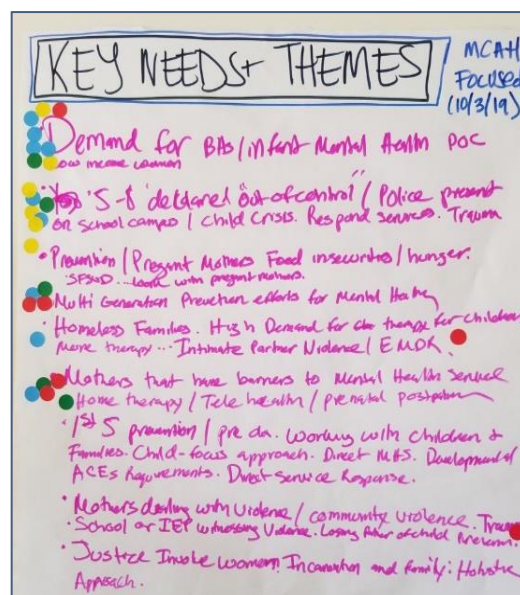 KEY NEEDS + THEMES
MCAH
Focused
(10/3/19)
Demand for BAs / infant Mental Health POC
Low income women
5-8 "declared out of control" / Police present
on school campus / Child Crisis. Respond services. Trauma
• Prevention / Pregnant Mothers Food insecurities / hunger.
SFUSD... work with pregnant mothers.
• Multi Generation Prevention efforts for Mental Health
• Homeless Families. High Demand for therapy for children
more therapy... Intimate Partner Violence / EMDR.
• Mothers that have barriers to Mental Health Service
Home therapy / Tele health / prenatal postpartum
• 1st 5 prevention / pre da. Working with children &
Families. Child-focus approach. Direct MHS. Developmental
ACEs Requirements. Direct Service Response.
• Mothers dealing with violence / community violence. Trauma
• School or IEP witnessing Violence. Losing of child
• Justice Involve women. Incarceration and family: Holistic
Approach.